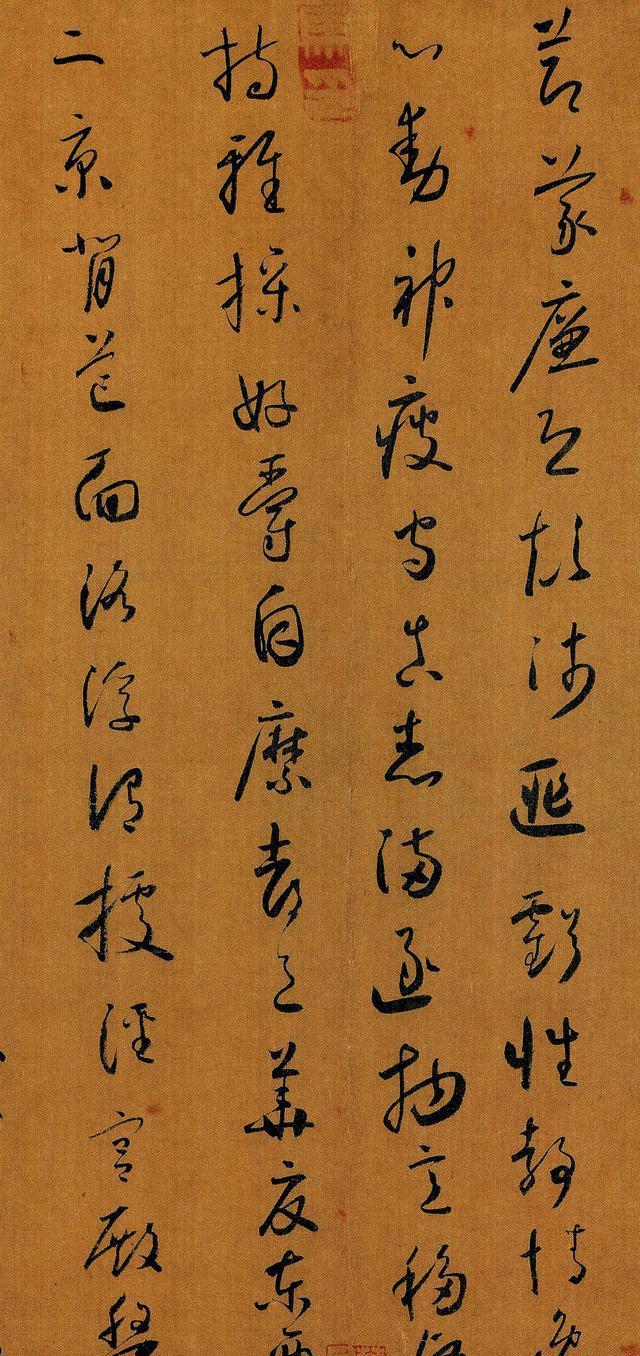 節義廉退顛沛匪虧性靜情逸
心動神疲守真志滿逐物意移
持雅操好爵自縻都邑華夏東西
二京背芒面洛浮渭據涇宮殿盤